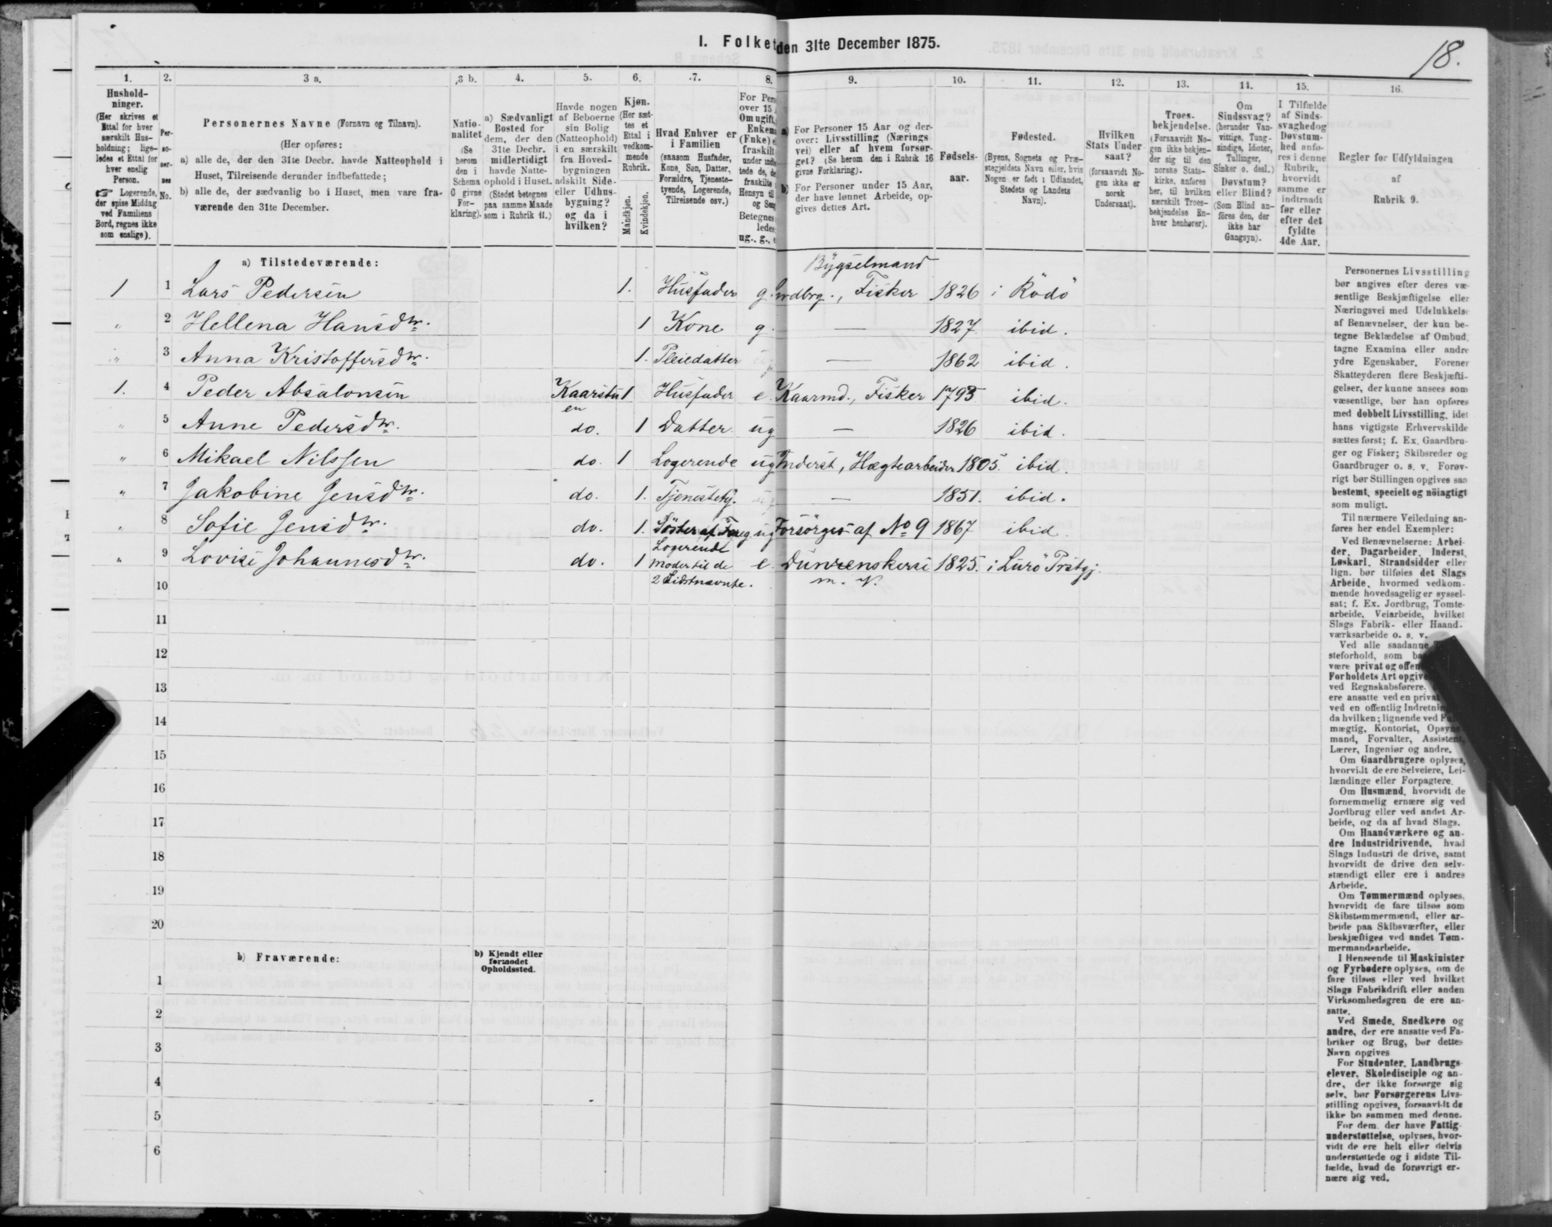 18.
I. Folket
den 31te December 1875.
1.
2.
3 a.
3 b.
4.
5.
6.
7.
8.
9.
10.
11.
12.
13.
14.
15.
16.
Hushold-
ninger.
(Her skrives et
Ettal for hver
særskilt Hus-
holdning; lige-
ledes et Ettal for
hver enslig
Person.
☞ Logerende,
der spise Middag
ved Familiens
Bord, regnes ikke
som enslige).
Per-
so-
ner-
nes
No.
Personernes Navne (Fornavn og Tilnavn).
(Her opføres:
a) alle de, der den 31te Decbr. havde Natteophold i
Huset, Tilreisende derunder indbefattede;
b) alle de, der sædvanlig bo i Huset, men vare fra-
værende den 31te December.
Natio-
nalitet
(Se
herom
den i
Schema
G givne
For-
klaring).
a) Sædvanligt
Bosted for
dem, der den
31te Decbr.
midlertidigt
havde Natte-
ophold i Huset.
(Stedet betegnes
paa samme Maade
som i Rubrik 11.)
Havde nogen
af Beboerne
sin Bolig
(Natteophold)
i en særskilt
fra Hoved-
bygningen
adskilt Side-
eller Udhus-
bygning?
og da i
hvilken?
Kjøn.
(Her sæt-
tes et
Ettal i
vedkom-
mende
Rubrik.
Mandkjøn.
Kvindekjøn.
Hvad Enhver er
i Familien
(saasom Husfader,
Kone, Søn, Datter,
Forældre, Tjeneste-
tyende, Logerende,
Tilreisende osv.)
For Pers
over 15
Om ugift,
Enkem
(Fnke)
fraskilt
a) For Personer 15 Aar og der-
over: Livsstilling (Nærings
vei) eller af hvem forsør-
get? (Se herom den i Rubrik 16
givne Forklaring).
b) For Personer under 15 Aar,
der have lønnet Arbeide, op-
gives dettes Art.
Fødsels-
aar.
Fødested.
(Byens, Sognets og Præ-
stegjeldets Navn eller, hvis
Nogen er født i Udlandet,
Stedets og Landets
Navn).
Hvilken
Stats Under
saat?
(forsaavidt No-
gen ikke er
norsk
Undersaat).
Troes-
bekjendelse.
(Forsaavidt No-
gen ikke bekjen-
der sig til den
norske Stats-
kirke, anføres
her, til hvilken
særskilt Troes-
bekjendelse En-
hver henhører).
Om
Sindssvag?
(herunder Van-
vittige, Tung-
sindige, Idioter,
Tullinger,
Sinker o. desl.)
Døvstum?
eller Blind?
(Som Blind an-
føres den, der
ikke har
Gangsyn).
I Tilfælde
af Sinds-
svaghedog
Døvstum-
hed anfø-
res i denne
Rubrik,
hvorvidt
samme er
indtraadt
før eller
efter det
fyldte
4de Aar.
Regler for Udfyldningen
af
Rubrik 9.
a) Tilstedeværende:
Bygselmand
1 1 Lars Pedersen 1. Husfader g. Jordbrg., Fisker 1826 i Rödö
" 2 Hellena Hansdtr. 1 Kone g. — 1827 ibid.
" 3 Anna Kristoffersdtr. 1. Pleiedatter ug — 1862 ibid.
1. 4 Peder Absalonsen Kaarstuen 1 Husfader e. Kaarmd., Fisker 1793 ibid.
" 5 Anne Pedersdtr. do. 1 Datter ug — 1826 ibid.
" 6 Mikael Nilssen do. 1 Logerende ug Inderst, Hægtearbeider 1805. ibid.
" 7 Jakobine Jensdtr. do. 1. Tjenestetj. ug — 1851. ibid.
" 8 Sofie Jensdtr. do. 1. Söster af Foreg ug Forsörges af No 9 1867 ibid.
" 9 Lovise Johannesdtr. do. 1 Logerende moder til de 2 Sidstnævnte. e. Dunrenskerse m. v. 1825. i Lurö Prstgj.
10
11
12
13
14
15
16
17
18
19
20
b) Fraværende:
b) Kjendt eller
formodet
Opholdssted.
1
2
3
4
5
6
Personernes Livsstilling
bør angives efter deres væ-
sentlige Beskjæftigelse eller
Næringsvei med Udelukkelse
af Benævnelser, der kun be-
tegne Beklædelse af Ombud,
tagne Examina eller andre
ydre Egenskaber. Forener
Skatteyderen flere Beskjæfti-
gelser, der kunne ansees som
væsentlige, bør han opføres
med dobbelt Livsstilling, idet
hans vigtigste Erhvervskilde
sættes først; f. Ex. Gaardbru-
ger og Fisker; Skibsreder og
Gaardbruger o. s. v. Forøv-
rigt bør Stillingen opgives saa
bestemt, specielt og nøiagtigt
som muligt.
Til nærmere Veiledning an-
føres her endel Exempler:
Ved Benævnelserne: Arbei-
der, Dagarbeider, Inderst,
Løskarl, Strandsidder eller
lign. bør tilføies det Slags
Arbeide, hvormed vedkom-
mende hovedsagelig er syssel-
sat; f. Ex. Jordbrug, Tomte-
arbeide, Veiarbeide, hvilket
Slags Fabrik- eller Haand-
værksarbeide o. s. v.
Ved alle saadanne
steforhold, som
være privat og
Forholdets Art
ved Regnskabsførere,
ere ansatte ved en
ved en offentlig
da hvilken; lignende ved
mægtig, Kontorist,
mand, Forvalter,
Lærer, Ingeniør og andre.
Om Gaardbrugere oplyses,
hvorvidt de ere Selveiere, Lei-
lændinge eller Forpagtere.
Om Husmænd, hvorvidt de
fornemmelig ernære sig ved
Jordbrug eller ved andet Ar-
beide, og da af hvad Slags.
Om Haandværkere og an-
dre Industridrivende, hvad
Slags Industri de drive, samt
hvorvidt de drive den selv-
stændigt eller ere i andres
Arbeide.
Om Tømmermænd oplyses,
hvorvidt de fare tilsøs som
Skibstømmermænd, eller ar-
beide paa Skibsværfter, eller
beskjæftiges ved andet Tøm-
mermandsarbeide.
I Henseende til Maskinister
og Fyrbødere oplyses, om de
fare tilsøs eller ved hvilket
Slags Fabrikdrift eller anden
Virksomhedsgren de ere an-
satte.
Ved Smede, Snedkere og
andre, der ere ansatte ved Fa-
briker og Brug, bør dettes
Navn opgives
For Studenter, Landbrugs-
elever, Skoledisciple og an-
dre, der ikke forsørge sig
selv, bør Forsørgerens Livs-
stilling opgives, forsaavidt de
ikke bo sammen med denne.
For dem, der have Fattig-
understøttelse, oplyses, hvor-
vidt de ere helt eller delvis
understøttede og i sidste Til-
fælde, hvad de forøvrigt er-
nære sig ved.